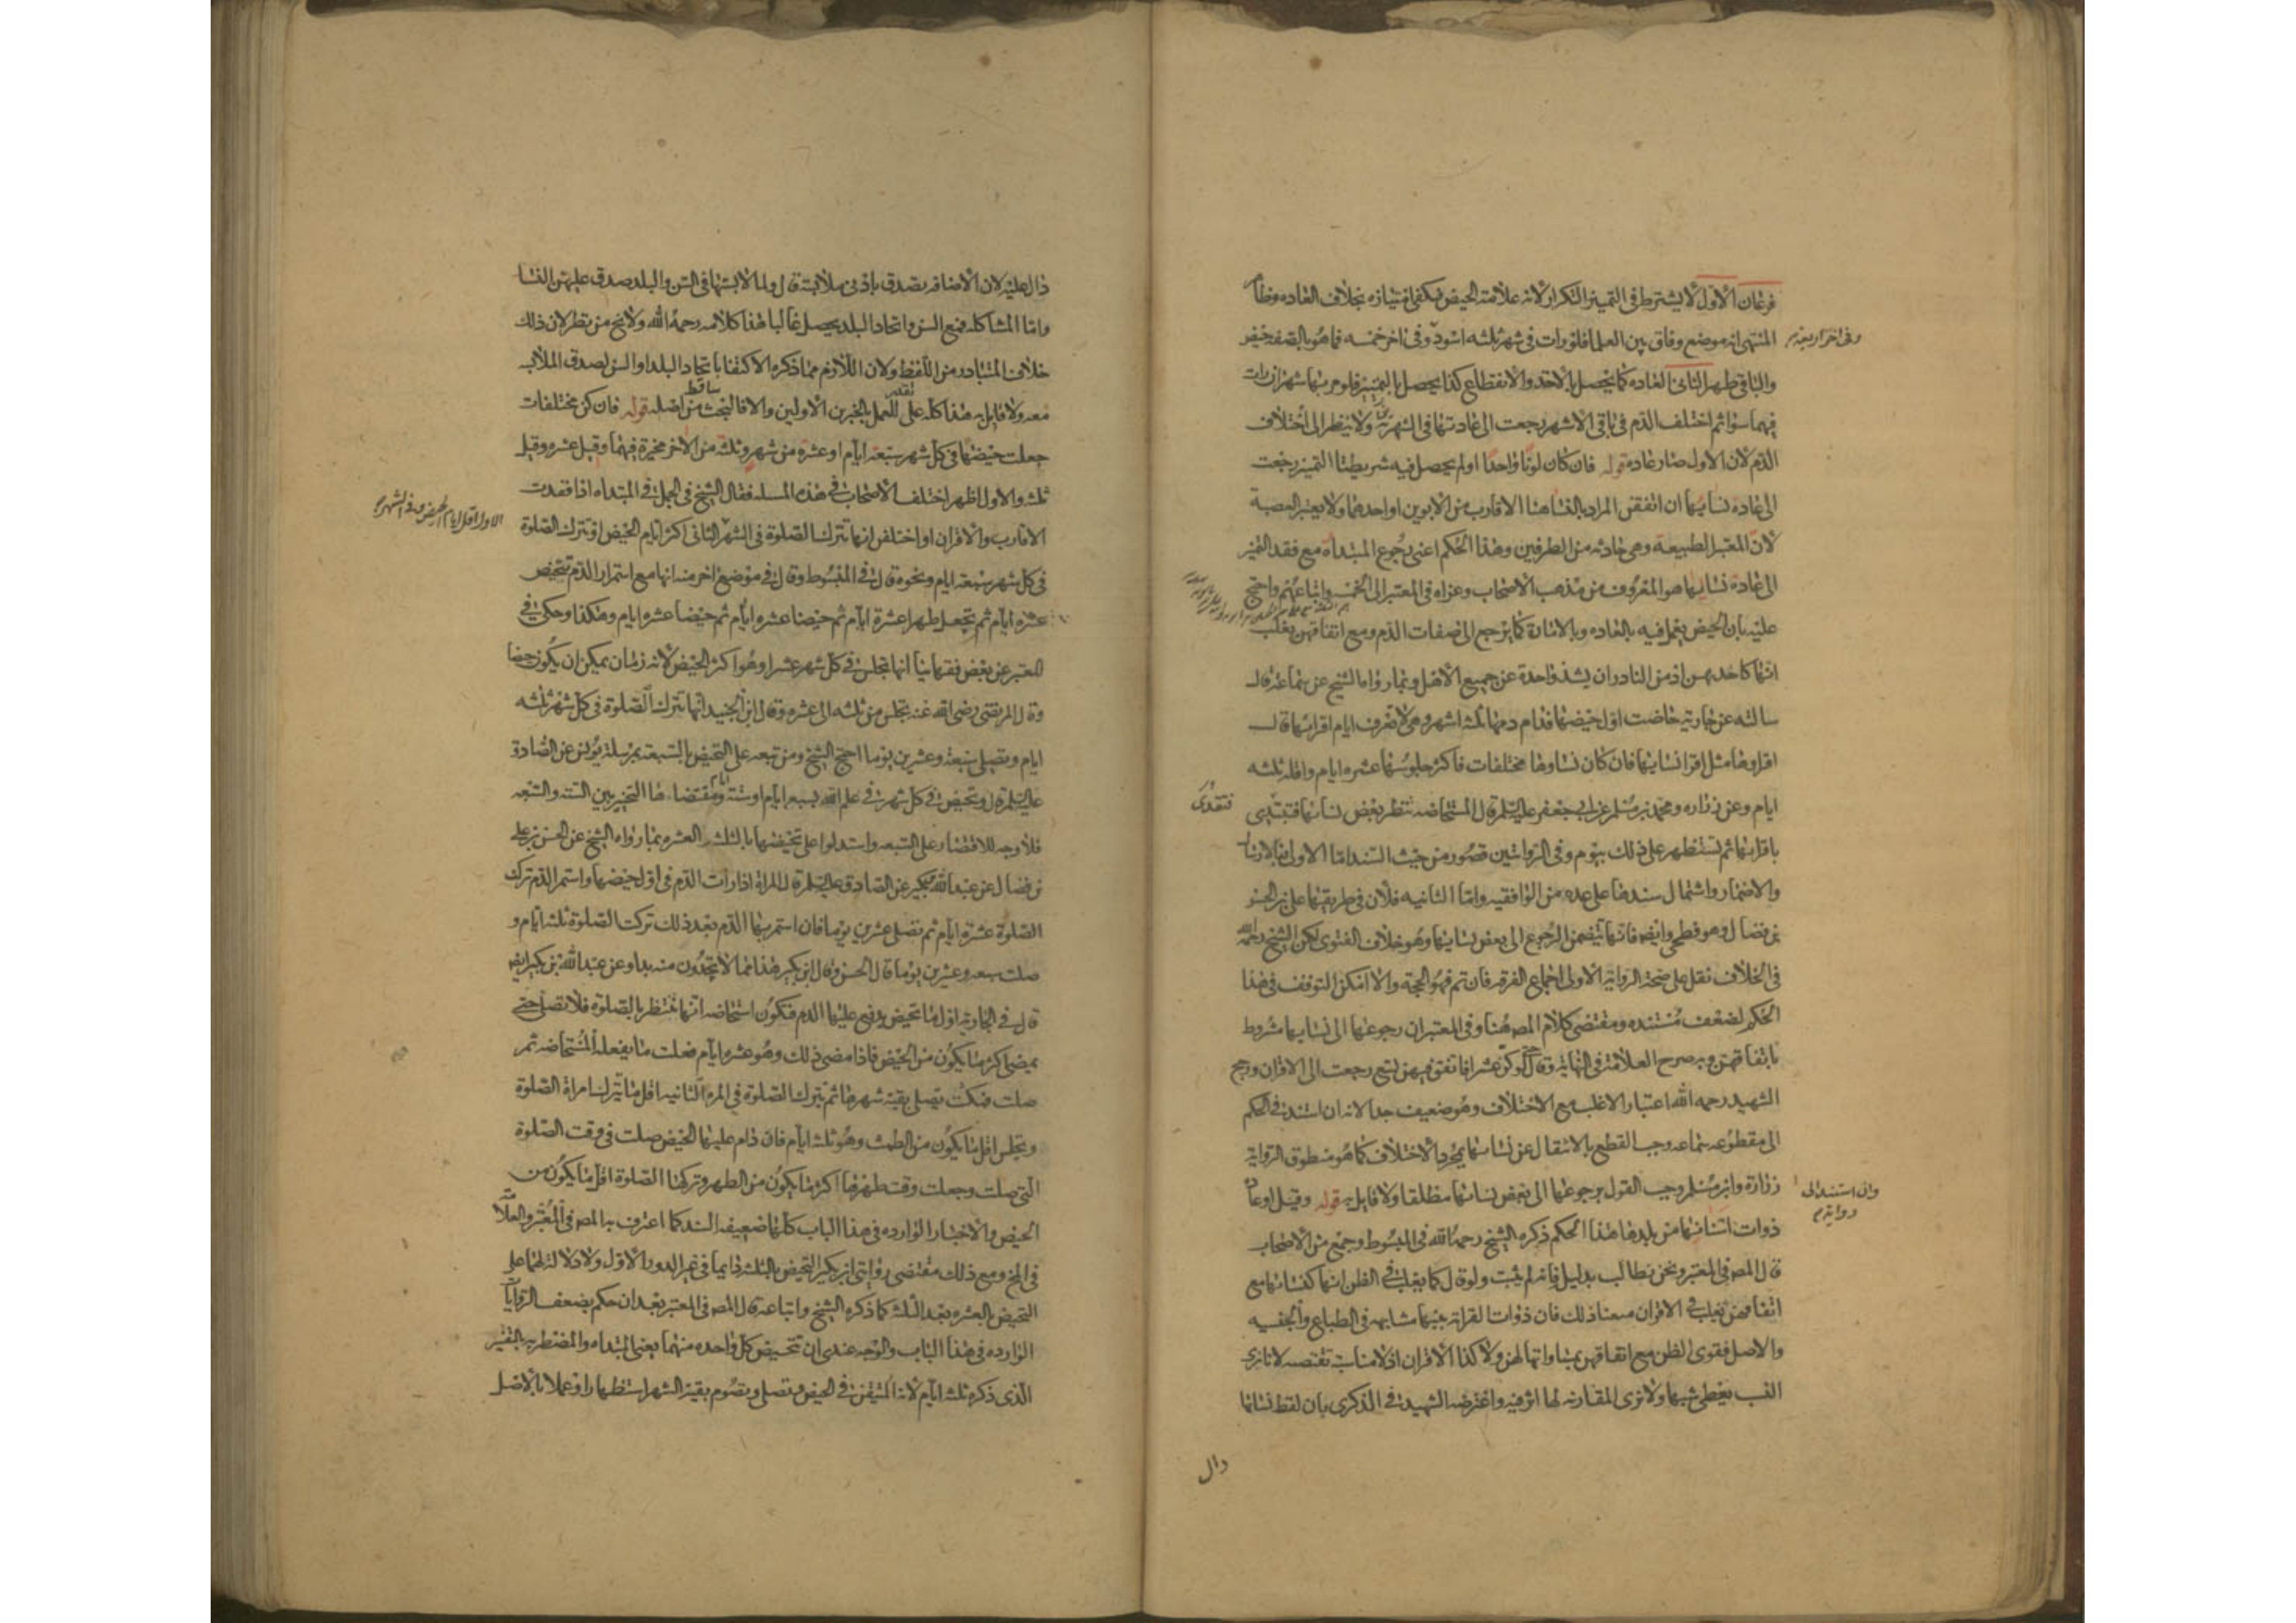 فرعان الاول لا يشترط في التميز التكرار لانه علامة الحيض فيكفي امتيازه بخلاف العاده وظاهر
المنتهى انه موضع وفاق بين العلما فلو رات في شهر ثلثه اسود وفي اخر خمسه فما هو بالصفه حيض
وفي اخر اربعة
والباقي طهر الثاني العاده كما يحصل بالاخذ والانقطاع كذا يحصل بالتميز فلو مر بها شهران رات
فيهما سوا ثم اختلف الدم في باقي الاشهر رجعت الى عادتها في الشهرين ولا ينظر الى اختلاف
الدم لان الاول صار عاده قوله فان كان لونا واحدا او لم يحصل فيه شريطتا التميز رجعت
الى عاده نسايها ان اتفقن المراد بالنسا هنا الاقارب من الابوين او احدهما ولا يعتبر العصبة
لان المعتبر الطبيعة وهي حادثه من الطرفين وهذا الحكم اعني رجوع المبتداة مع فقد التميز
الى عادة نسايها هو المعروف من مذهب الاصحاب وعزاه في المعتبر الى الخمسه واتباعهم واحتج
عليه بان الحيض يعمل فيه بالعاده وبالامارة كما يرجع الى صفات الدم ومع اتفاقهن يغلب
انها كاحديهن اذ من النادر ان يشذ واحدة عن جميع الاهل وبما رواه الشيخ عن سماعه قال
سالته عن جاريه حاضت اول حيضها فدام دمها ثلثه اشهر وهي لا تعرف ايام اقرائها قال
اقراوها مثل اقرا نسايها فان كان نساوها مختلفات فاكثر جلوسها عشره ايام واقله ثلثه
ايام وعن زراره ومحمد بن مسلم عن ابي جعفر عليه السلم قال المستحاضه تنظر بعض نسائها فتقتدي
فتقتدي
باقرائها ثم تستظهر على ذلك بيوم وفي الروايتين قصور من حيث السند اما الاولى فبالارسال
والاضمار واشتمال سندها على عده من الواقفيه واما الثانيه فلان في طريقها علي بن الحسن
بن فضال وهو فطحي وايضا فانها تتضمن الرجوع الى بعض نسايها وهو خلاف الفتوى لكن الشيخ رحمه الله
في الخلاف نقل على صحة الرواية الاولى اجماع الفرقه فان تم فهو الحجة والا امكن التوقف في هذا
الحكم لضعف مستنده ومقتضى كلام المص هنا وفي المعتبر ان رجوعها الى نسايها مشروط
باتفاقهن وبه صرح العلامة في النهاية وقال حتى لو كن عشرا فاتفق فيهن تسع رجعت الى الاقران ورجح
الشهيد رحمه الله اعتبار الاغلب مع الاختلاف وهو ضعيف جدا لانه ان استند في الحكم
الى مقطوعه سماعه وجب القطع بالانتقال عن نسائها بمجرد الاختلاف كما هو منطوق الرواية
وان استند الى رواية
زرارة وابن مسلم وجب القول برجوعها الى بعض نسائها مطلقا ولا قايل به قوله وقيل او عادة
ذوات اسنانها من بلدها هذا الحكم ذكره الشيخ رحمه الله في المبسوط وجمع من الاصحاب
قال المص في المعتبر ونحن نطالب بدليل فانه لم يثبت ولو قال كما يغلب في الظن انها كنسائها مع
اتفاقهن يغلب في الاقران منعنا ذلك فان ذوات القرابة بينها مشابهه في الطباع والجنسيه
والاصل فقوى الظن مع اتفاقهن بمساواتها لهن ولا كذا الاقران اذ لا مناسبة تقتضيه لانا نرى
النسب يعطي شبها ولا نرى المقارنه لها اثر فيه واعترضه الشهيد في الذكرى بان لفظ نسائها
دال
دال عليه لان الاضافه تصدق بادنى ملابسة قال ولما لابستها في السن والبلد صدق عليهن النسا
واما المشاكله فمع السن واتحاد البلد يحصل غالبا هذا كلامه رحمه الله ولا يخ من نظر لان ذلك
خلاف المتبادر من اللفظ ولان اللازم مما ذكره الاكتفا باتحاد البلد او السن لصدق الملابسه
معه ولا قايل به هذا كله على تقدير العمل بالخبرين الاولين والا فالبحث ساقط من اصله قوله فان كن مختلفات
جعلت حيضها في كل شهر سبعة ايام او عشرة من شهر وثلثه من الاخر مخيرة فيهما وقيل عشره وقيل
ثلثه والاول اظهر اختلف الاصحاب في هذه المسله فقال الشيخ في الجمل في المبتداه اذا فقدت
الاقارب والاقران او اختلفن انها تترك الصلوة في الشهر الثاني اكثر ايام الحيض او تترك الصلوة
الاول اقل ايام الحيض وفي الشهر
في كل شهر سبعة ايام ونحوه قال في المبسوط وقال في موضع اخر منه انها مع استمرار الدم تتحيض
عشره ايام ثم تجعل طهرا عشرة ايام ثم حيضا عشره ايام ثم حيضا عشره ايام وهكذا وحكى في
المعتبر عن بعض فقهائنا انها تجلس في كل شهر عشرا وهو اكثر الحيض لانه زمان يمكن ان يكون حيضا
وقال المرتضى رضي الله عنه تجلس من ثلثه الى عشره وقال ابن الجنيد انها تترك الصلوة في كل شهر ثلثه
ايام وتصلي سبعة وعشرين يوما احتج الشيخ ومن تبعه على التحيض بالسبعه بمرسلة يونس عن الصادق
عليه السلم قال وتحيض في كل شهر في علم الله سبعه ايام او سته ايام ومقتضاها التخيير بين السته والسبعه
فلا وجه للاقتصار على السبعه واستدلوا على تحيضها بالثلثه العشره بما رواه الشيخ عن الحسن بن علي
بن فضال عن عبد الله بن بكير عن الصادق عليه السلم قال المراة اذا رات الدم في اول حيضها واستمر الدم تركت
الصلوة عشرة ايام ثم تصلي عشرين يوما فان استمر بها الدم بعد ذلك تركت الصلوة ثلثه ايام و
صلت سبعه وعشرين يوما قال الحسن وقال ابن بكير هذا مما لا يجدون منه بدا وعن عبد الله بن بكير ايضا
قال في الجارية اول ما تحيض يدفع عليها الدم فتكون استحاضه انها تنتظر بالصلوة فلا تصلي حتى
يمضي اكثر ما يكون من الحيض فاذا مضى ذلك وهو عشره ايام فعلت ما يفعله المستحاضه ثم
صلت فمكثت تصلي بقية شهرها ثم تترك الصلوة في المره الثانيه اقل ما تترك امراة الصلوة
وتجلس اقل ما يكون من الطمث وهو ثلثه ايام فان دام عليها الحيض صلت في وقت الصلوة
التي صلت وجعلت وقت طهرها اكثر ما يكون من الطهر وتركها الصلوة اقل ما يكون من
الحيض والاخبار الوارده في هذا الباب كلها ضعيفه السند كما اعترف به المص في المعتبر والعلامة
في المخ ومع ذلك مقتضى روايتي ابن بكير التحيض بالثلثه دايما في غير الدور الاول ولا دلالة لهما على
التحيض بالعشره بعد الثلثه كما ذكره الشيخ واتباعه قال المص في المعتبر بعد ان حكم بضعف الروايات
الوارده في هذا الباب والوجه عندي ان تتحيض كل واحده منهما يعني المبتداه والمضطربه بالتفسير
الذي ذكره ثلثه ايام لانه المتيقن في الحيض وتصلي وتصوم بقية الشهر استظهارا وعملا بالاصل